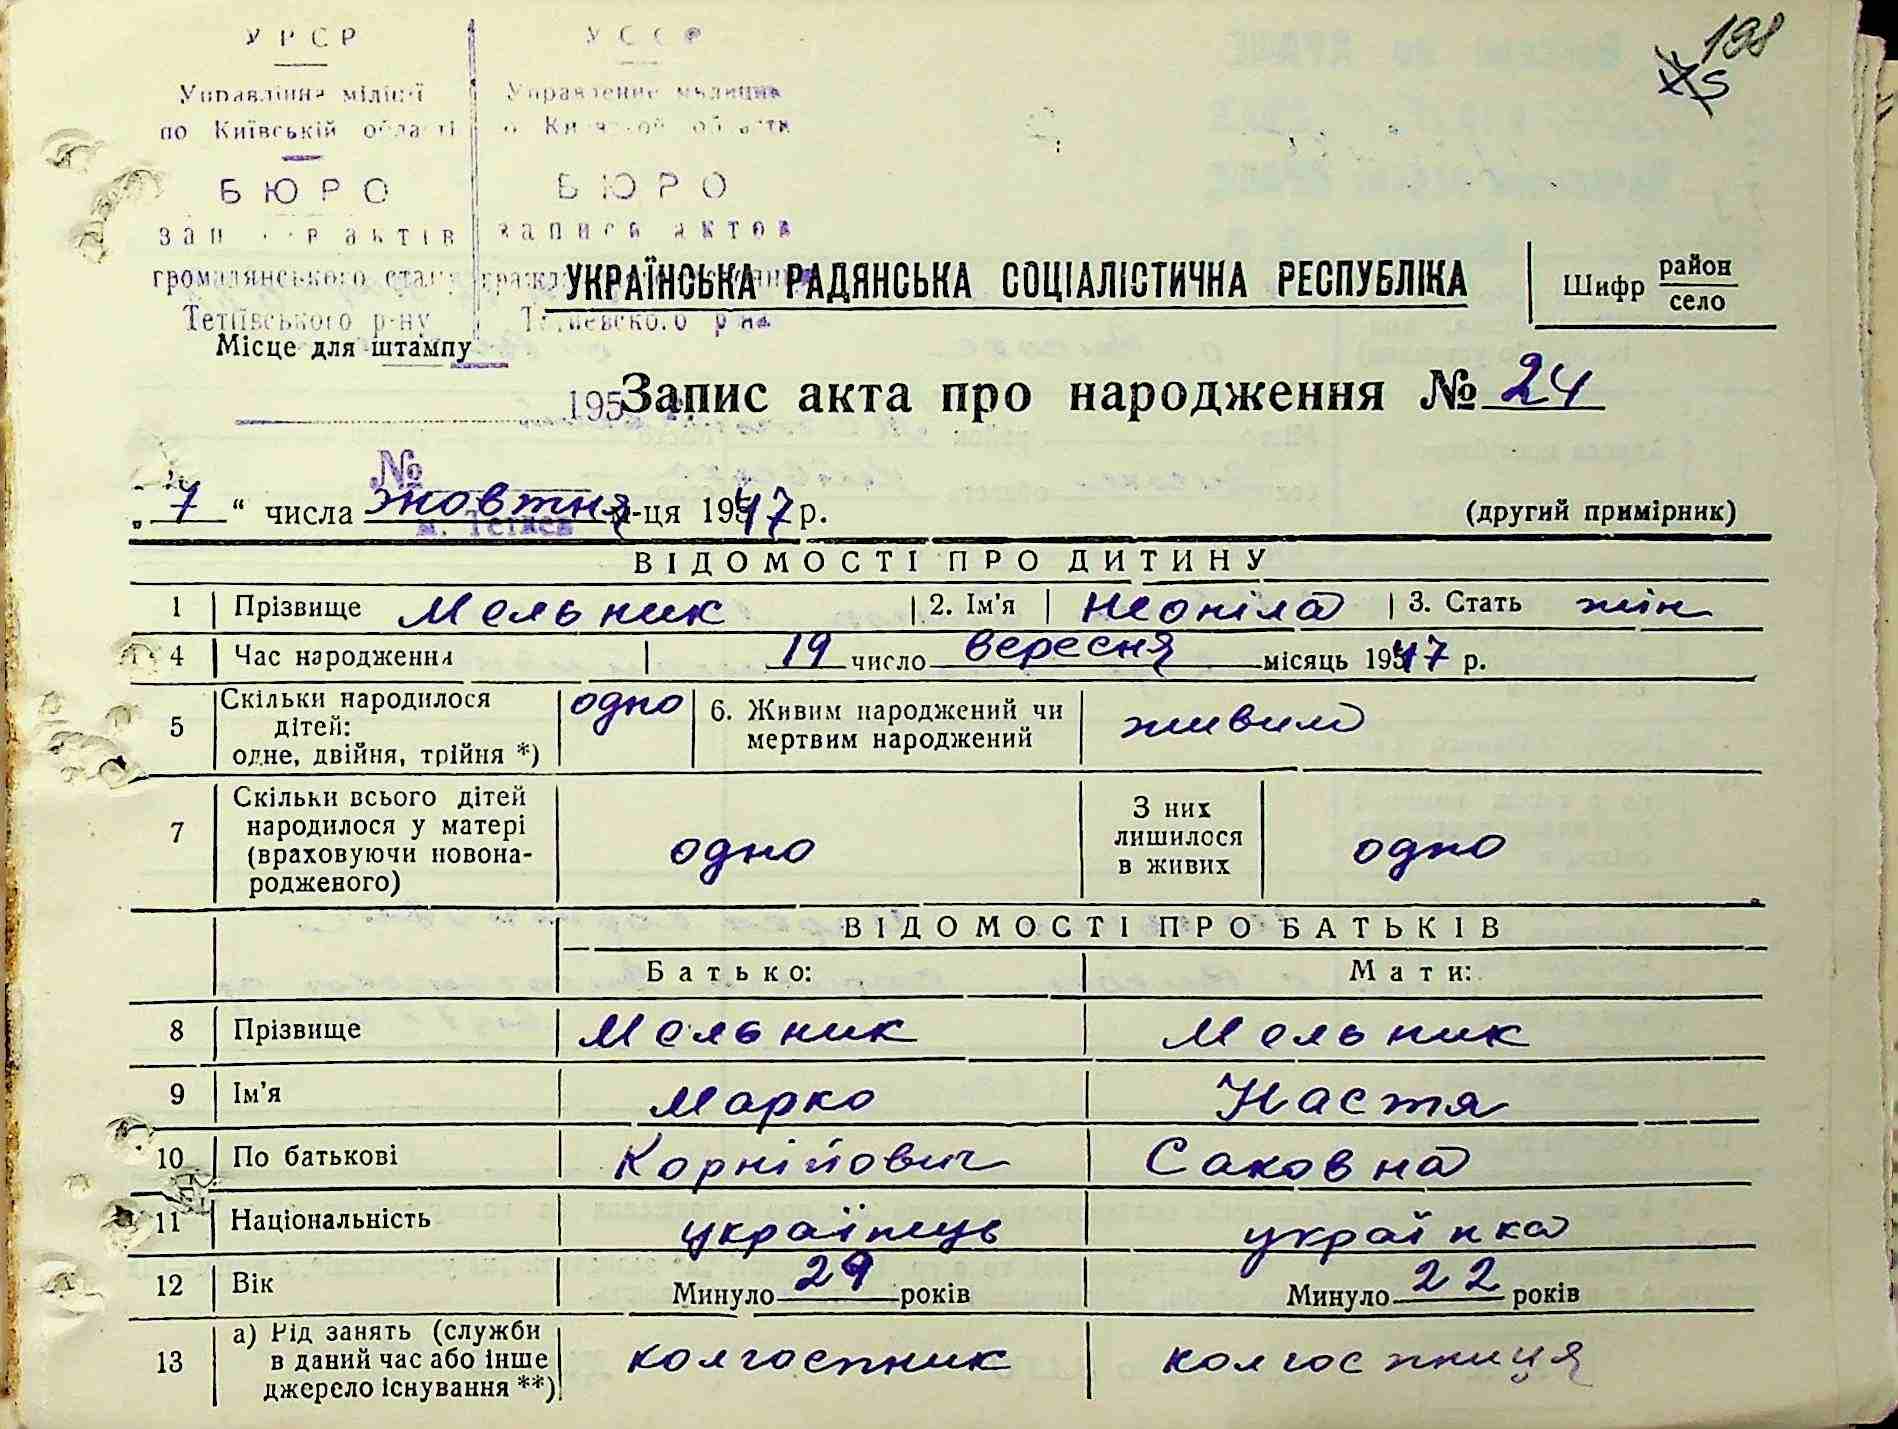 198
75
УРСР
Управління міліції
по Київській області
БЮРО
актів
громадянського стану
Тетіївського р-ну
УССР
Управление милиции
БЮРО
записи актов
Тетиевского р-на
Місце для штампу
195
№
м. Тетиев
УКРАЇНСЬКА РАДЯНСЬКА СОЦІАЛІСТИЧНА РЕСПУБЛІКА
Шифр район
село
Запис акта про народження № 24
„7“ числа жовтня м-ця 1947 р. (другий примірник)
ВІДОМОСТІ ПРО ДИТИНУ
1 Прізвище Мельник 2. Ім'я Неоніла 3. Стать жін
4 Час народження 19 число вересня місяць 1947 р.
5 Скільки народилося одно 6. Живим народжений чи живим
дітей: мертвим народжений
одне, двійня, трійня *)
7 Скільки всього дітей З них
народилося у матері одно лишилося одно
(враховуючи новона- в живих
родженого)
ВІДОМОСТІ ПРО БАТЬКІВ
Батько: Мати:
8 Прізвище Мельник Мельник
9 Ім'я Марко Настя
10 По батькові Корнійович Саковна
11 Національність українець українка
12 Вік Минуло 29 років Минуло 22 років
13 а) Рід занять (служби колгоспник колгоспниця
в даний час або інше
джерело існування **)